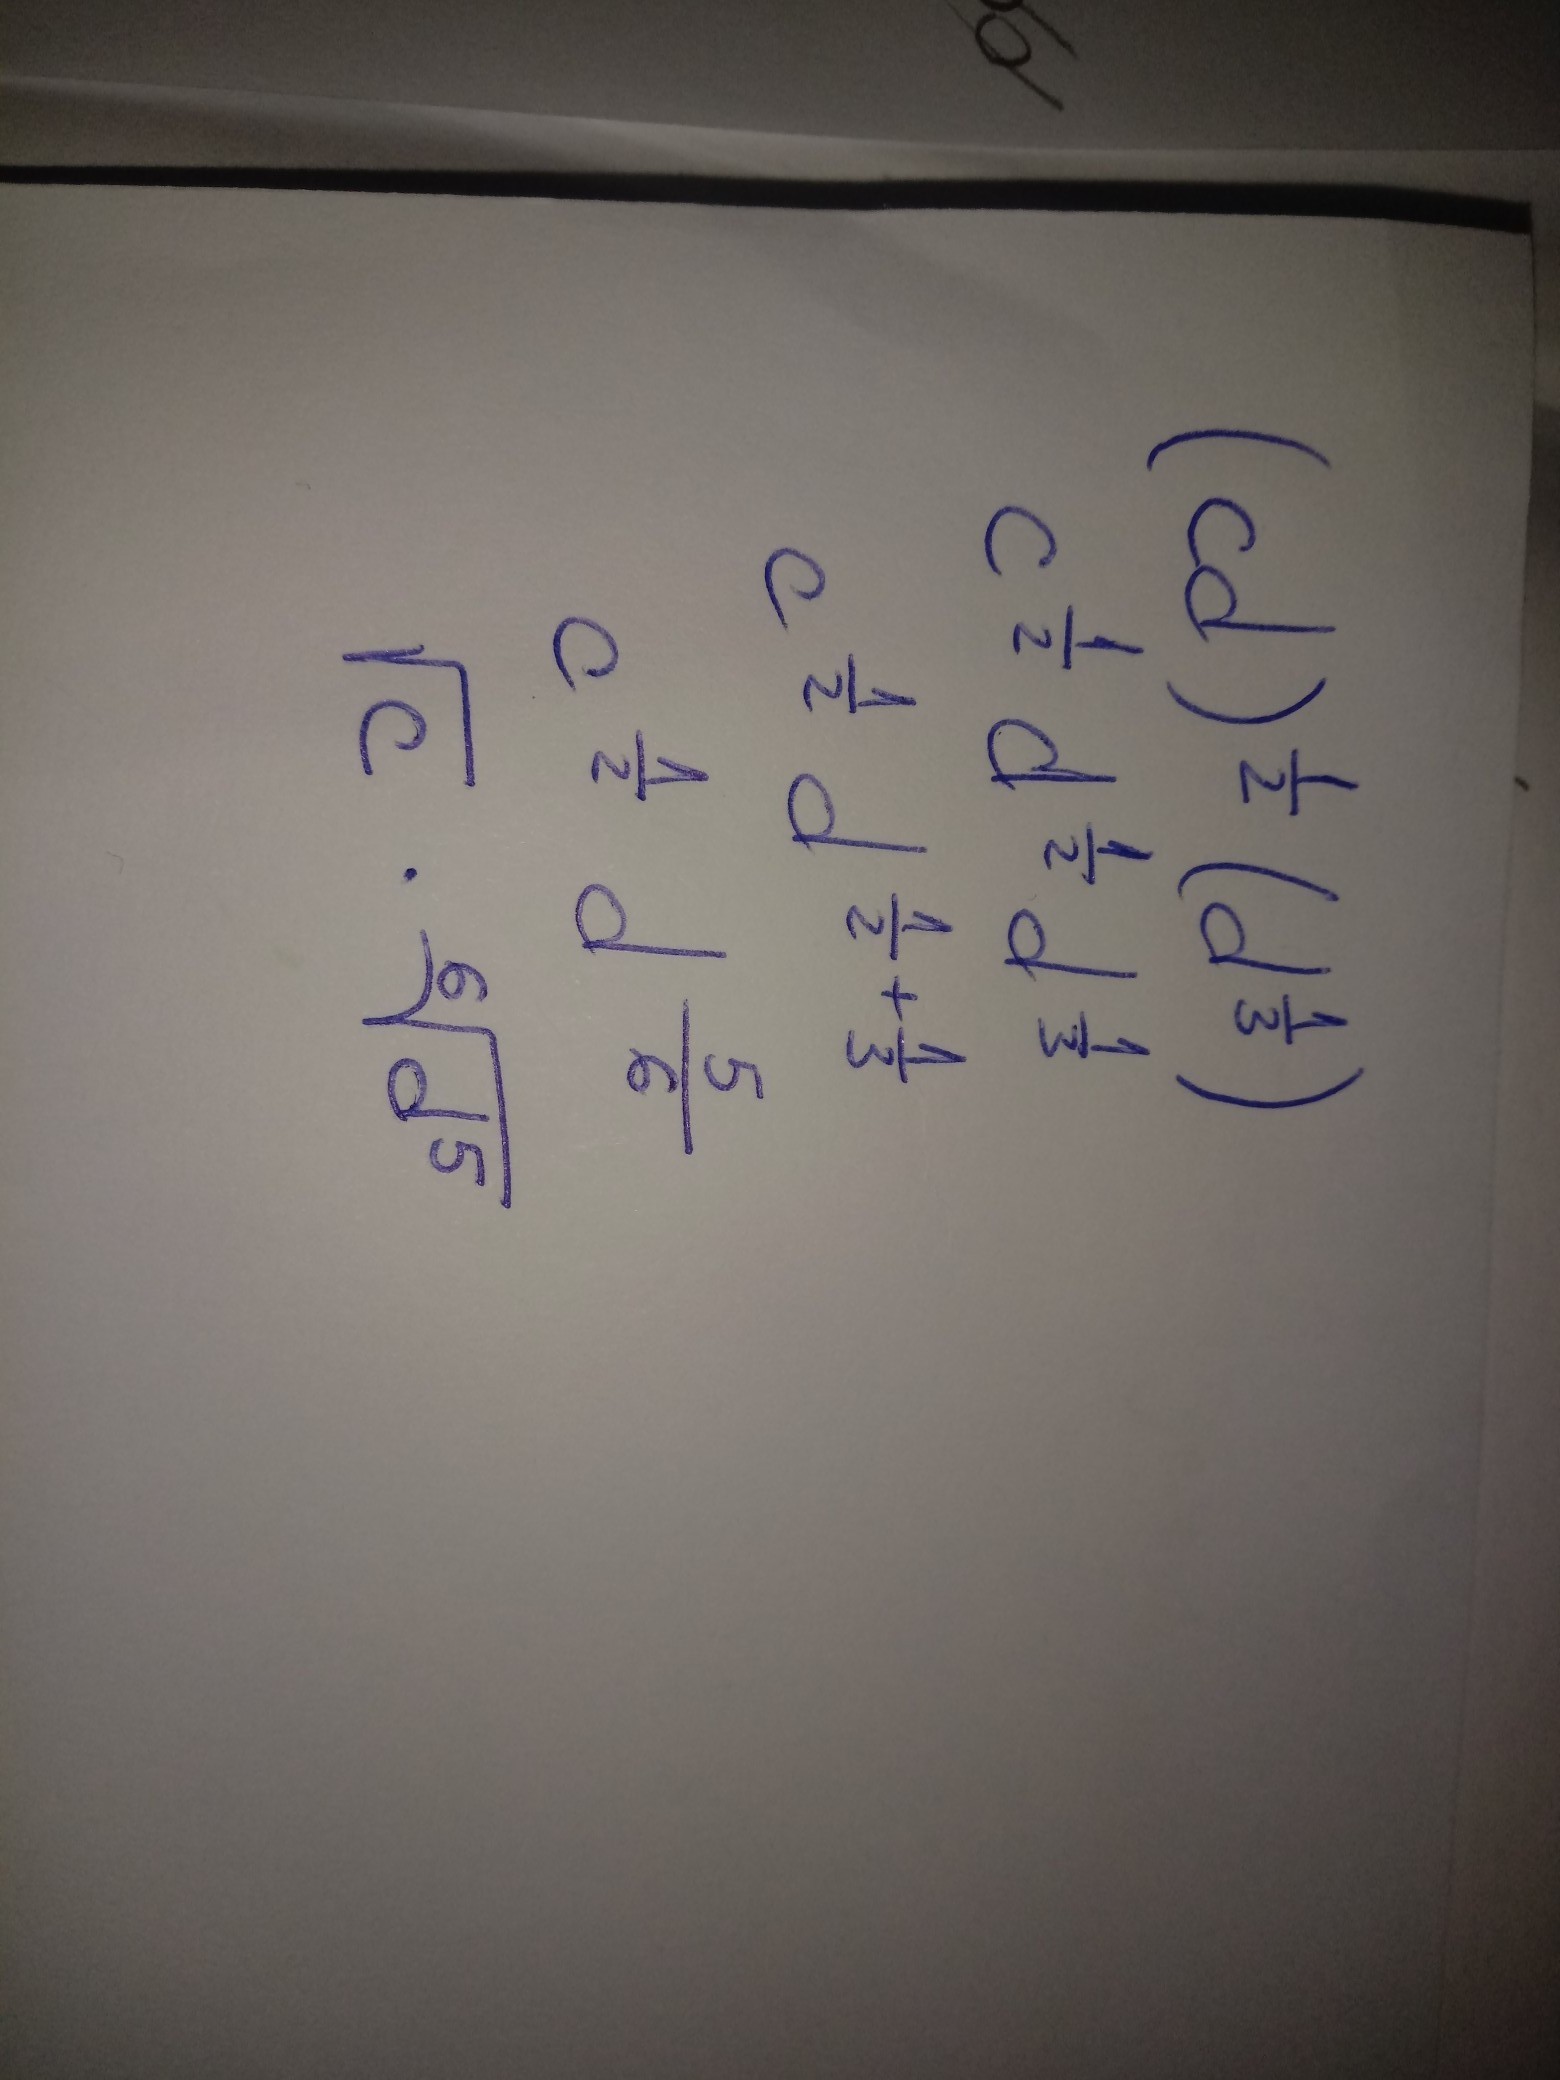 (cd)^{\frac{1}{2}} (d^{\frac{1}{3}})
c^{\frac{1}{2}} d^{\frac{1}{2}} d^{\frac{1}{3}}
c^{\frac{1}{2}} d^{\frac{1}{2}+\frac{1}{3}}
c^{\frac{1}{2}} d^{\frac{5}{6}}
\sqrt{c} \cdot \sqrt[6]{d^5}